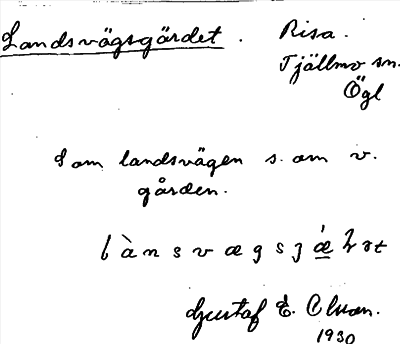 Landsvägsgärdet. Risa.
Tjällmo sn.
Ögl
I om landsvägen s. om v.
gården.
lànsvægsjǽrt
Gustaf E. Olson.
1930